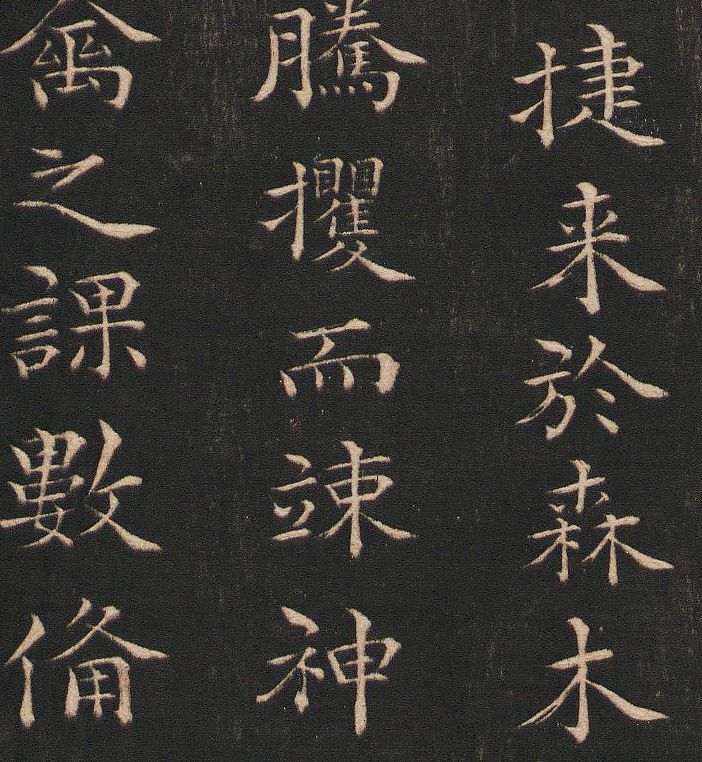 捷来於森木
騰攫而竦神
禽之課數備